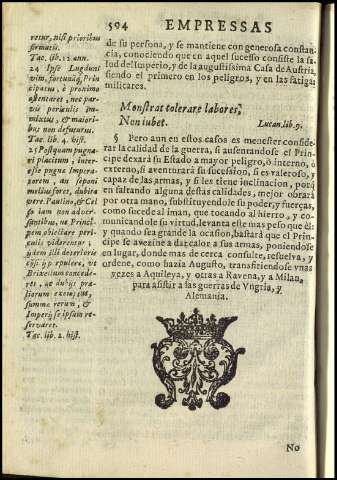 504 EMPRESSAS
retur, nisi prioribus
firmatis.
Tac. lib. 12. ann.
24 Ipse Lugduni
vim, fortunāq; Prin
cipatus, è proximo
ostentaret, nec par-
vis periculis im-
mixtus, & maiori-
bus non defuturus.
Tac. lib. 4. hist.
25 Postquam pugna-
ri placitum, inter-
esse pugnæ Impera-
torem, an seponi
melius foret, dubita
vere. Paulino, & Cel
so iam non adver-
santibus, ne Prin-
cipem obiectare peri-
culis viderentur;
ijdem illi deterioris
cōsilij
Brixellum concede-
ret, ac dubijs præ-
liorum exemptus,
summæ rerum, &
Imperij se ipsum re-
servaret.
Tac. lib. 2. hist.
de su persona, y se mantiene con generosa constan-
cia, conociendo que en aquel sucesso consiste la sa-
lud del Imperio, y de la augustissima Casa de Austria,
siendo el primero en los peligros, y en las fatigas
militares.
Monstrat tolerare labores,
Non iubet. Lucan. lib. 9.
§ Pero aun en estos casos es menester conside-
rar la calidad de la guerra, si ausentandose el Prin-
cipe dexará su Estado a mayor peligro, ò interno, ò
externo, si aventurará su sucession, si es valeroso, y
capaz de las armas, y si les tiene inclinacion, porq̃
en faltando alguna destas calidades, mejor obrará
por otra mano, substituyendole su poder, y fuerças,
como sucede al iman, que tocando al hierro, y co-
municandole su virtud, levanta este mas peso que èl:
y quando sea grande la ocasion, bastará que el Prin-
cipe se avezine a dar calor a sus armas, poniendose
en lugar, donde mas de cerca consulte, resuelva, y
ordene, como hazia Augusto, transfiriendose vnas
vezes a Aquileya, y otras a Ravena, y a Milan,
para assistir a las guerras de Vngria, y
Alemania.
No